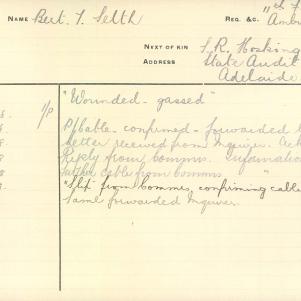 NAME Bert. T. Selth
REG. &C. "
NEXT OF KIN S. R. Hosking
ADDRESS State Audit
Adelaide
"Wounded - gassed"
P/Cable - confirmed - forwarded
Letter received from Inquirer.
Reply from Commrs. Information
Further cable from Commrs "
"Slip" from Commrs, confirming cable
Same forwarded Inquirer.